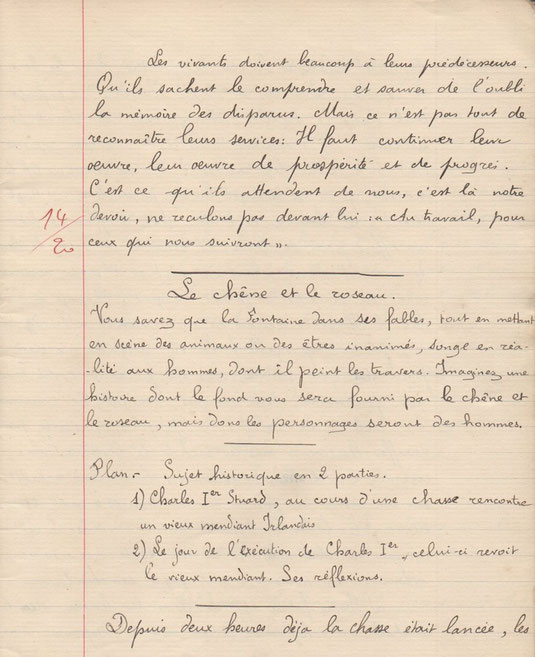 Les vivants doivent beaucoup à leurs prédécesseurs.
Qu'ils sachent le comprendre et sauver de l'oubli
la mémoire des disparus. Mais ce n'est pas tout de
reconnaître leurs services: Il faut continuer leur
œuvre, leur œuvre de prospérité et de progrès.
C'est ce qu'ils attendent de nous, c'est là notre
devoir, ne reculons pas devant lui : « Au travail, pour
ceux qui nous suivront ».
14/20
Le chêne et le roseau.
Vous savez que la Fontaine dans ses fables, tout en mettant
en scène des animaux ou des êtres inanimés, songe en réa-
-lité aux hommes, dont il peint les travers. Imaginez une
histoire dont le fond vous sera fourni par le chêne et
le roseau, mais dont les personnages seront des hommes.
Plan.- Sujet historique en 2 parties.
1) Charles Ier Stuard, au cours d'une chasse rencontre
un vieux mendiant Irlandais
2) Le jour de l'exécution de Charles Ier, celui-ci revoit
le vieux mendiant. Ses réflexions.
Depuis deux heures déja la chasse était lancée, les